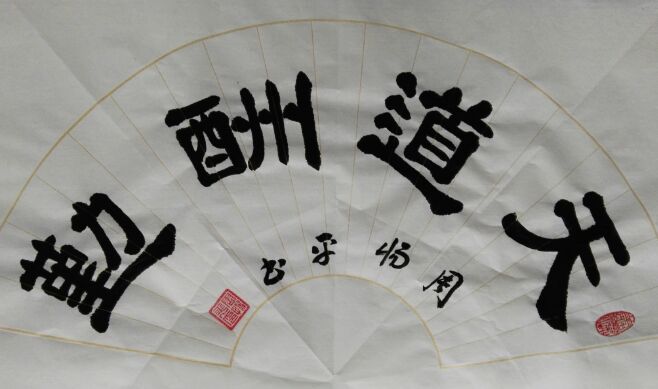 天道酬勤
周 平书